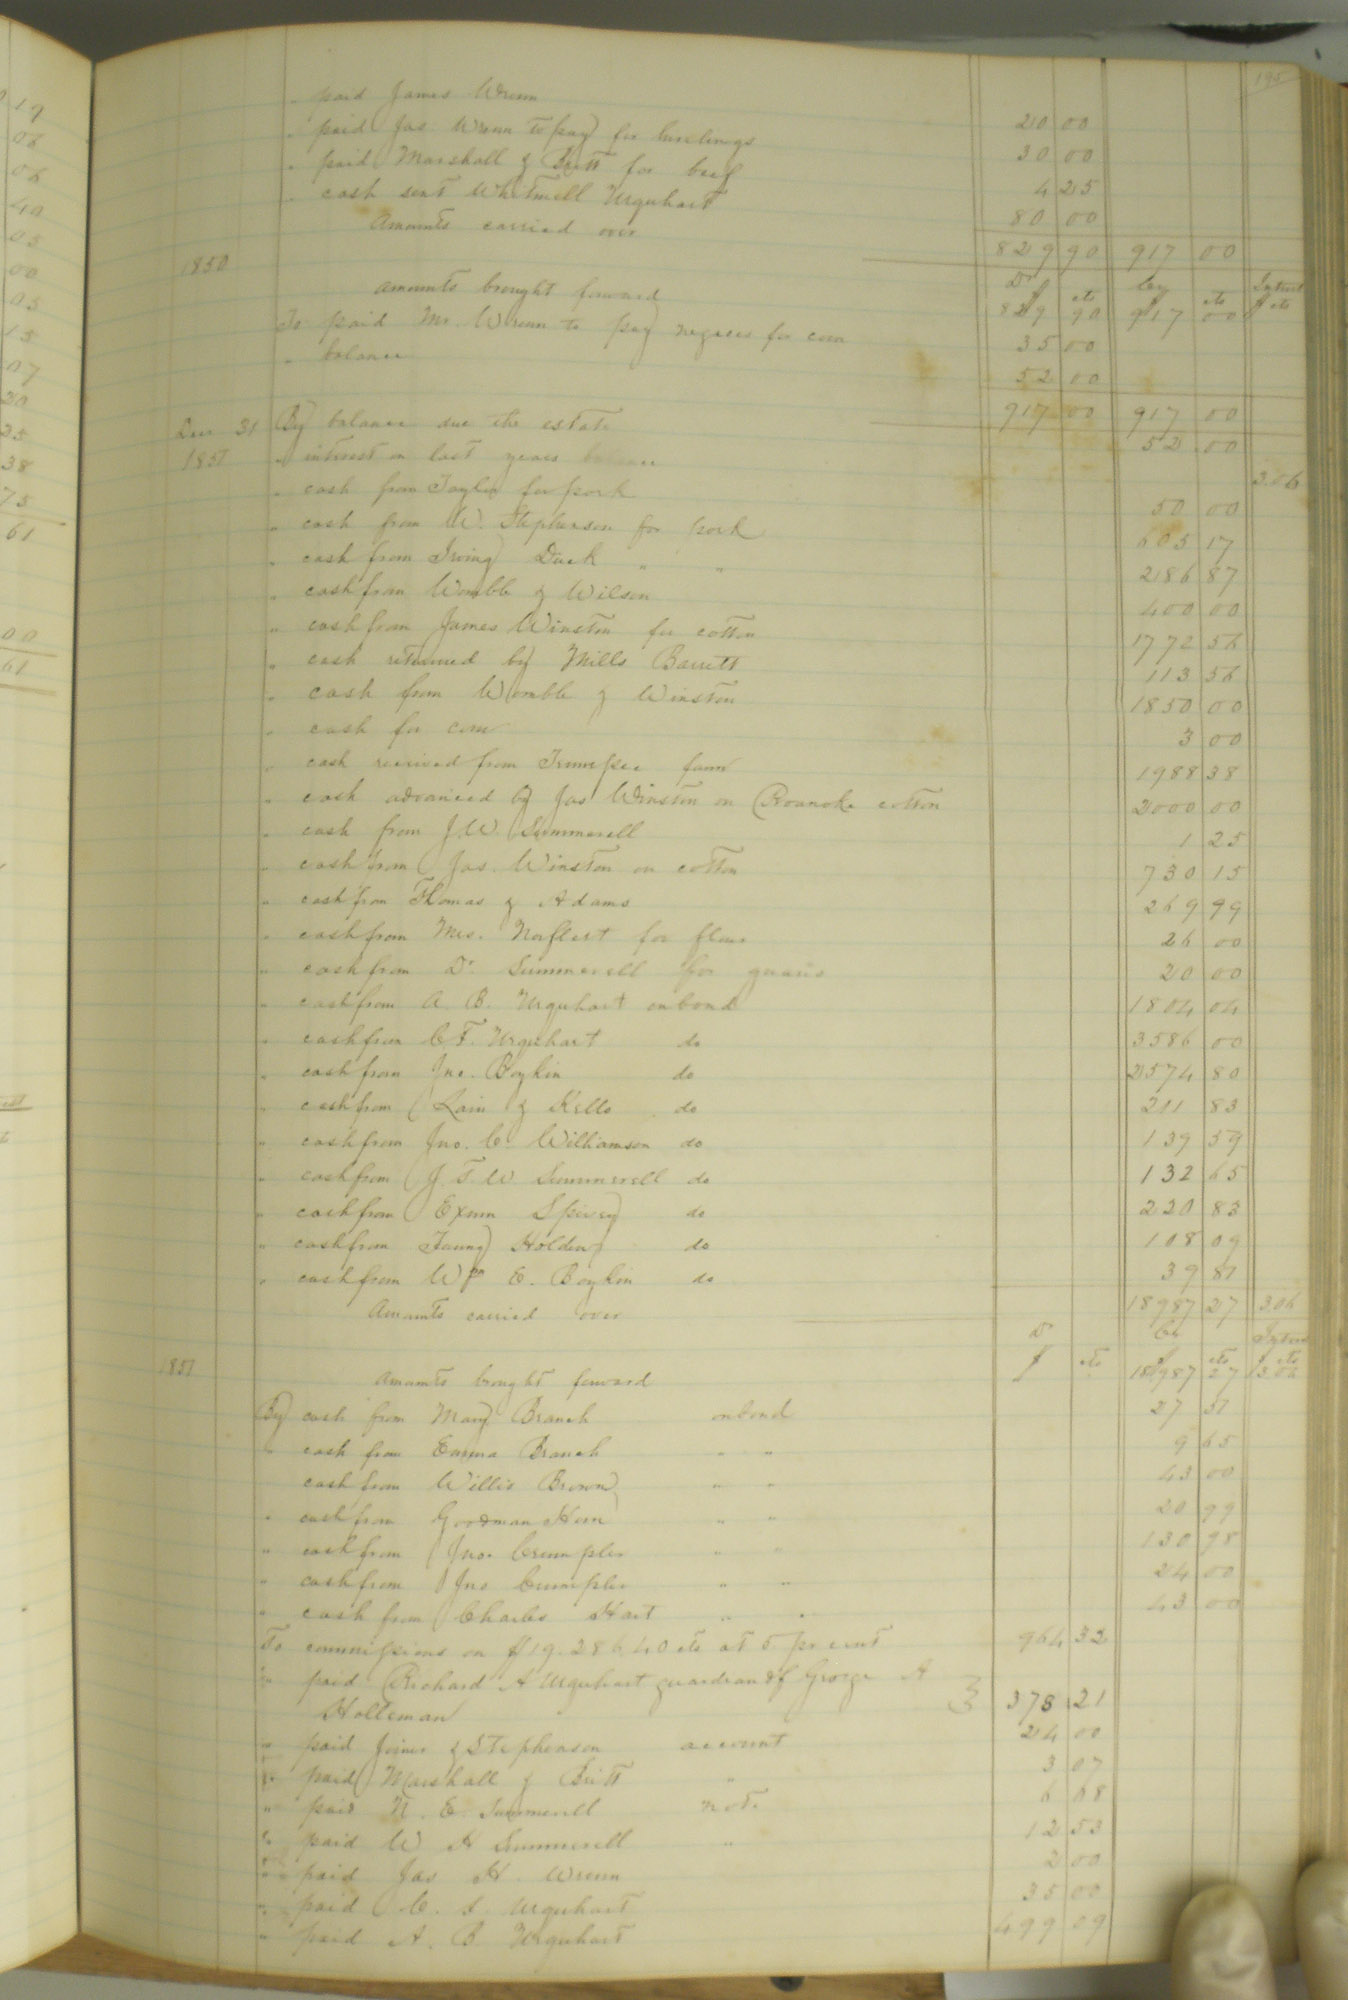 195
" paid James Wrenn 20 00
" paid Jas Wrenn to pay for hirelings 30 00
" paid Marshall & Britt for beef 4 25
" cash sent Whitmell Urquhart 80 00
Amounts carried over 829 90 917 00
1850 Dr Cr Intrst
$ cts $ cts $ cts
amounts brought forward 829 90 917 00
To paid Mr. Wrenn to pay negroes for corn 35 00
" balance 52 00
917 00 917 00
Dec 31 By balance due the estate 52 00
1851 " interest on last years balance 3.06
" cash from Taylor for pork 50 00
" cash from W. Stephenson for pork 605 17
" cash from Irving Duck " " 286 87
" cash from Womble & Wilson 400 00
" cash from James Winston for cotton 1772 56
" cash returned by Mills Barrett 113 56
" cash from Womble & Winston 1850 00
" cash for corn 3 00
" cash received from farm 1988 38
" cash advanced by Jas Winston on Roanoke cotton 2000 00
" cash from J W Summerell 1 25
" cash from Jas. Winston on cotton 730 15
" cash from Thomas & Adams 269 99
" cash from Mrs. Norfleet for flour 26 00
" cash from Dr. Summerell for guano 20 00
" cash from A. B. Urquhart on bond 1804 04
" cash from C F. Urquhart do 3586 00
" cash from Jno. Boykin do 2574 80
" cash from Lain & Kello do 211 83
" cash from Jno. C. Williamson do 139 59
" cash from J. T. W Summerell do 132 65
" cash from Exum Spivey do 220 83
" cash from Fanny Holden do 108 09
" cash from Wm E. Boykin do 39 81
Amounts carried over 18987 27 3.06
Dr Cr Intrst
1851 $ cts $ cts $ cts
Amounts brought forward 18987 27 3.06
By cash from Mary Branch on bond 27 51
" cash from Emma Branch " " 9 65
cash from Willis Brown " " 43 00
" cash from Goodman Horn " " 20 99
" cash from Jno. Crumpler " " 130 98
" cash from Jno Crumpler " " 24 00
" cash from Charles Hart " " 43 00
To commissions on $19.286,40 cts at 5 pr cent 964 32
" paid Richard A Urquhart guardian of George A
Holleman 378 21
" paid Joiner & Stephenson account 24 00
" paid Marshall & Britt " 3 07
" paid N. E. Summerell note 6 68
" paid W H Summerell " 12 53
" paid Jas H. Wrenn 2 00
" paid C. S. Urquhart 35 00
" paid A. B Urquhart 499 09